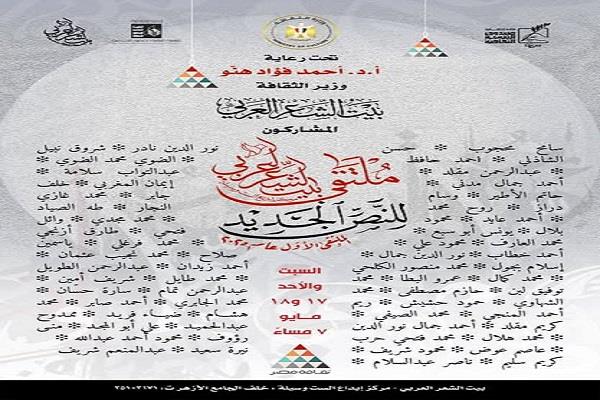 تحت رعاية
أ.د. أحمد فؤاد هنو
وزير الثقافة
بيت الشعر العربي
المشاركون
سامح محجوب * حسن
الشاذلي * أحمد حافظ
* عبدالرحمن مقلد *
أحمد جمال مدني *
حاتم الأطير * وسام
دراز * روح محمد
* أحمد عايد * محمود
بلال * يونس أبو سبع *
محمد العارف * محمود علي *
أحمد خطاب * نور الدين جمال *
إسلام بجول * محمد منصور الكلحي
* محمد كمال * عمرو البطا * محمد
توفيق لبن * حازم مصطفى * محمد
الشهاوي * حمود حشيش * ريم
أحمد المنجي * محمد الصيفي *
كريم مقلد * أحمد جمال نور الدين
* محمد هلال * محمد فتحي حرب
* عاصم عوض * محمود شريف *
كريم سليم * ناصر عبدالسلام *
نور الدين نادر * شروق نبيل
* الضوي محمد الضوي *
عبدالتواب سلامة *
إيمان المغربي * خلف
جابر * محمد غازي
النجار * طه الصياد
* محمد مجدي * وائل
فتحي * طارق أرنجي
* محمد فرغلي * ياسمين
صلاح * محمد نجيب عثمان *
أحمد زيدان * عبدالرحمن الطويل
* محمد طايل * شريف أمين *
عبدالرحمن تمام * سارة حسان *
محمد الجابري * أحمد صابر * محمد
هشام * ضياء فريد * ممدوح
عبدالحميد * علي أبو المجد * منى
رؤوف * محمود أحمد عبدالله *
نيرة سعيد * عبدالمنعم شريف
ملتقى بيت الشعر العربي
للنص الجديد
الملتقى الأول مايو ٢٠٢٥
السبت
والأحد
١٧ و ١٨
مايو
٧ مساءً
ثقافة مصر
بيت الشعر العربي - مركز إبداع الست وسيلة ، خلف الجامع الأزهر ت: ٢٥١٠٣١٧١